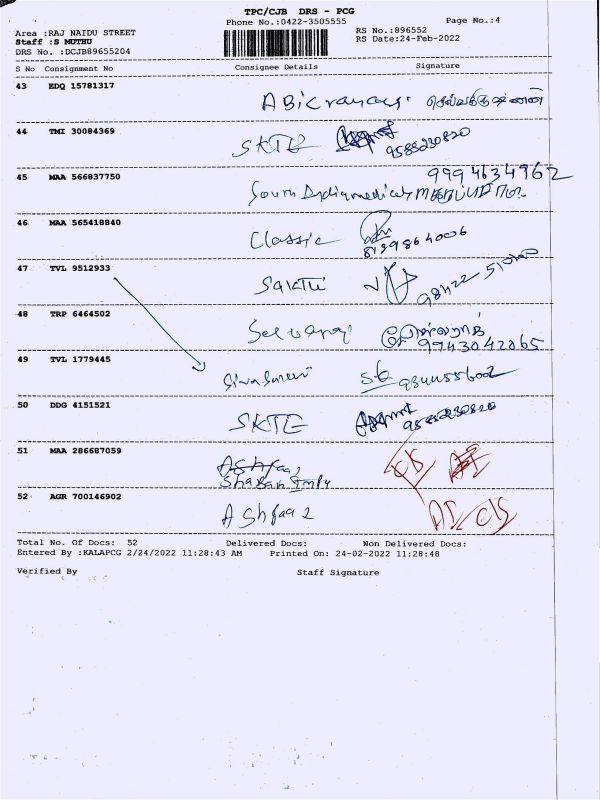 TPC/CJB DRS - PCG
Phone No.:0422-3505555
Page No.:4
Area :RAJ NAIDU STREET
RS No.:896552
Staff :S MUTHU
RS Date:24-Feb-2022
DRS No. :DCJB89655204
S No Consignment No Consignee Details Signature
43 EDQ 15781317
44 TMI 30084369 SKTE 9585230820
45 MAA 566837750 9994634962
South India medicals
46 MAA 565418840 Classic
8799864006
47 TVL 9512933 Sakthi
48 TRP 6464502 Selvaraj செல்வராஜ்
9943042065
49 TVL 1779445
50 DDG 4151521 SKTE 9585230820
51 MAA 286687059 Ashfaq
52 AGR 700146902 Ashfaq
Total No. Of Docs: 52 Delivered Docs: Non Delivered Docs:
Entered By :KALAPCG 2/24/2022 11:28:43 AM Printed On: 24-02-2022 11:28:48
Verified By Staff Signature